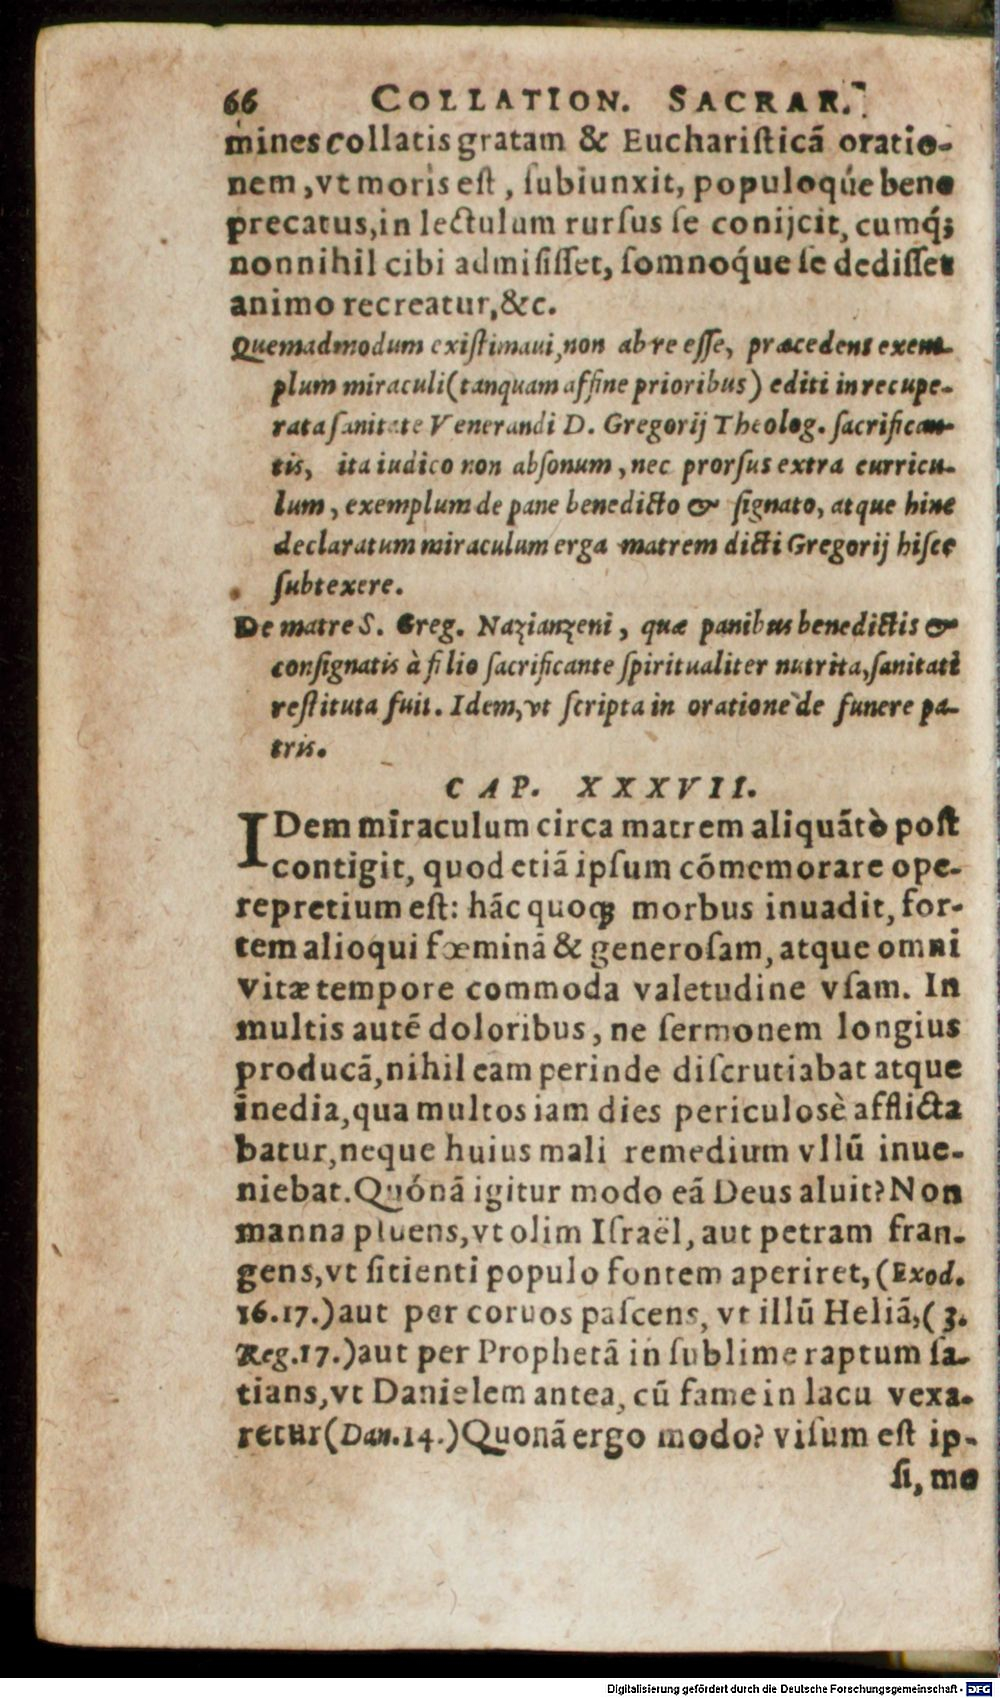 66 COLLATION. SACRAR.
mines collatis gratam & Euchariſticã oratio-
nem, vt moris eſt, ſubiunxit, populoqúe bene
precatus, in lectulum rurſus ſe conijcit, cumq́;
nonnihil cibi admiſiſſet, ſomnoq́ue ſe dediſſet
animo recreatur, &c.
Quemadmodum exiſtimaui, non ab re eſſe, præcedens exem-
plum miraculi (tanquam affine prioribus) editi in recupe-
rata ſanitate Venerandi D. Gregorij Theolog. ſacrifican-
tis, ita iudico non abſonum, nec prorſus extra curricu-
lum, exemplum de pane benedicto & ſignato, atque hinc
declaratum miraculum erga matrem dicti Gregorij hiſce
ſubtexere.
De matre S. Greg. Nazianzeni, quæ panibus benedictis &
conſignatis à filio ſacrificante ſpiritualiter nutrita, ſanitati
reſtituta fuit. Idem, vt ſcripta in oratione de funere pa-
tris.
CAP. XXXVII.
IDem miraculum circa matrem aliquãtò poſt
contigit, quod etiã ipſum cõmemorare ope-
repretium eſt: hãc quoq; morbus inuadit, for-
tem alioqui fœminã & generoſam, atque omni
vitæ tempore commoda valetudine vſam. In
multis autẽ doloribus, ne ſermonem longius
producã, nihil eam perinde diſcrutiabat atque
inedia, qua multos iam dies periculosè afflicta
batur, neque huius mali remedium vllũ inue-
niebat. Quónã igitur modo eã Deus aluit? Non
manna pluens, vt olim Iſraël, aut petram fran-
gens, vt ſitienti populo fontem aperiret, (Exod.
16.17.) aut per coruos paſcens, vt illũ Heliã, (3.
Reg.17.) aut per Prophetã in ſublime raptum ſa-
tians, vt Danielem antea, cũ fame in lacu vexa-
retur (Dan.14.) Quonã ergo modo? viſum eſt ip-
ſi, me
Digitalisierung gefördert durch die Deutsche Forschungsgemeinschaft - DFG